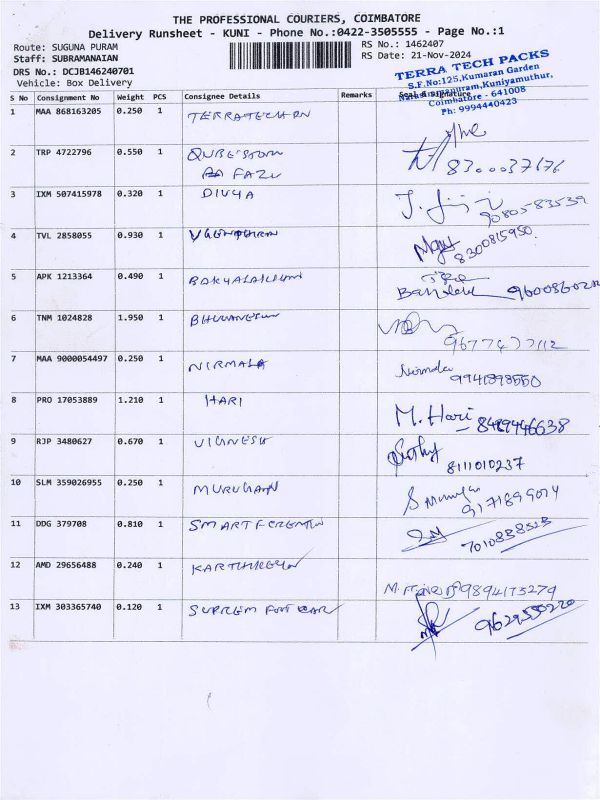 THE PROFESSIONAL COURIERS, COIMBATORE
Delivery Runsheet - KUNI - Phone No.:0422-3505555 - Page No.:1
Route: SUGUNA PURAM RS No.: 1462407
Staff: SUBRAMANAIAN RS Date: 21-Nov-2024
DRS No.: DCJB146240701
Vehicle: Box Delivery
TERRA TECH PACKS
S.F.No:125,Kumaran Garden
Narasimmapuram,Kuniyamuthur,
Coimbatore - 641008
Ph: 9994440423
S No Consignment No Weight PCS Consignee Details Remarks Seal & Signature
1 MAA 868163205 0.250 1
2 TRP 4722796 0.550 1 8300037676
FAZU
3 IXM 507415978 0.320 1 DIVYA 9080583539
4 TVL 2858055 0.930 1 8300815950
5 APK 1213364 0.490 1
6 TNM 1024828 1.950 1
7 MAA 9000054497 0.250 1 NIRMALA Nirmala 9941898550
8 PRO 17053889 1.210 1 HARI M. Hari
9 RJP 3480627 0.670 1 VIGNESH 8111010237
10 SLM 359026955 0.250 1 MURUGAN 9171899074
11 DDG 379708 0.810 1 7010838523
12 AMD 29656488 0.240 1 9894175279
13 IXM 303365740 0.120 1 SUPREM FOOT CARE 9629550220